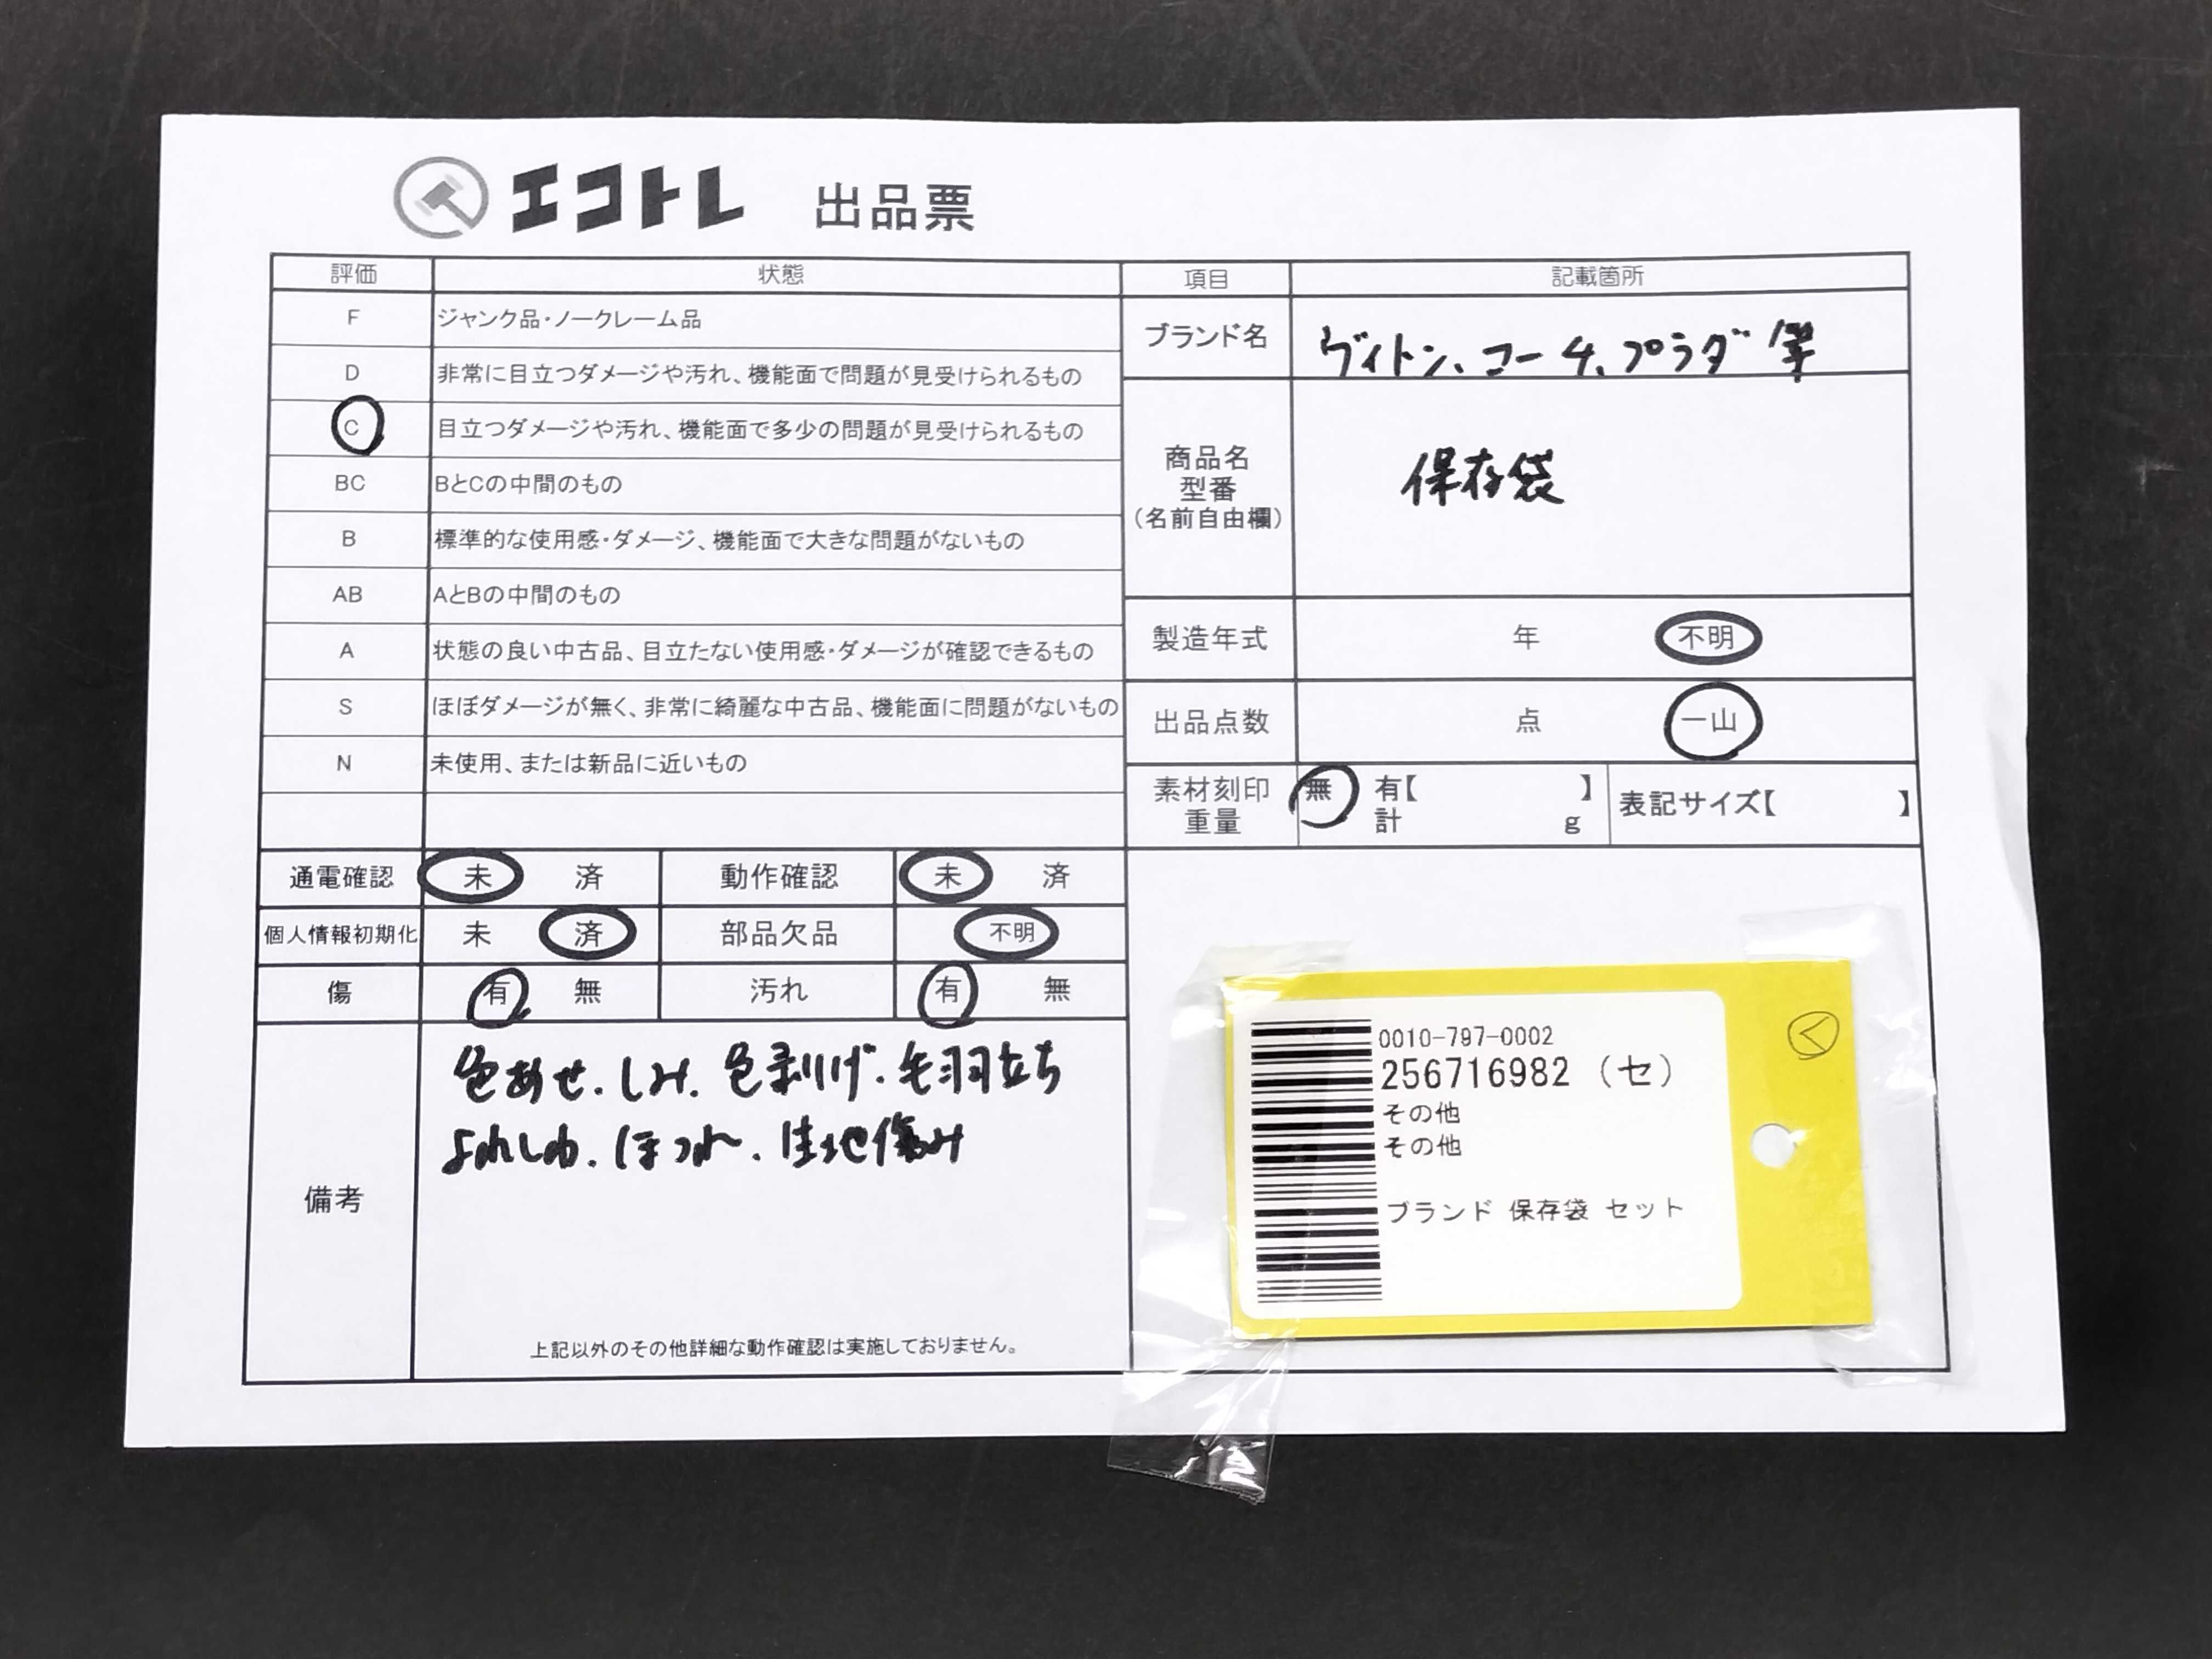 エコトレ 出品票
評価 状態
F ジャンク品・ノークレーム品
D 非常に目立つダメージや汚れ、機能面で問題が見受けられるもの
C 目立つダメージや汚れ、機能面で多少の問題が見受けられるもの
BC BとCの中間のもの
B 標準的な使用感・ダメージ、機能面で大きな問題がないもの
AB AとBの中間のもの
A 状態の良い中古品、目立たない使用感・ダメージが確認できるもの
S ほぼダメージが無く、非常に綺麗な中古品、機能面に問題がないもの
N 未使用、または新品に近いもの
項目 記載箇所
ブランド名 ヴィトン、コーチ、プラダ 等
商品名
型番
(名前自由欄)
保存袋
製造年式 年 不明
出品点数 点 一山
素材刻印 無 有【 】
重量 計 g
表記サイズ【 】
通電確認 未 済 動作確認 未 済
個人情報初期化 未 済 部品欠品 不明
傷 有 無 汚れ 有 無
備考
色あせ.しみ.色剥げ.毛羽立ち
よれしわ.ほつれ.生地傷み
上記以外のその他詳細な動作確認は実施しておりません。
0010-797-0002
256716982 (セ)
その他
その他
ブランド 保存袋 セット
く